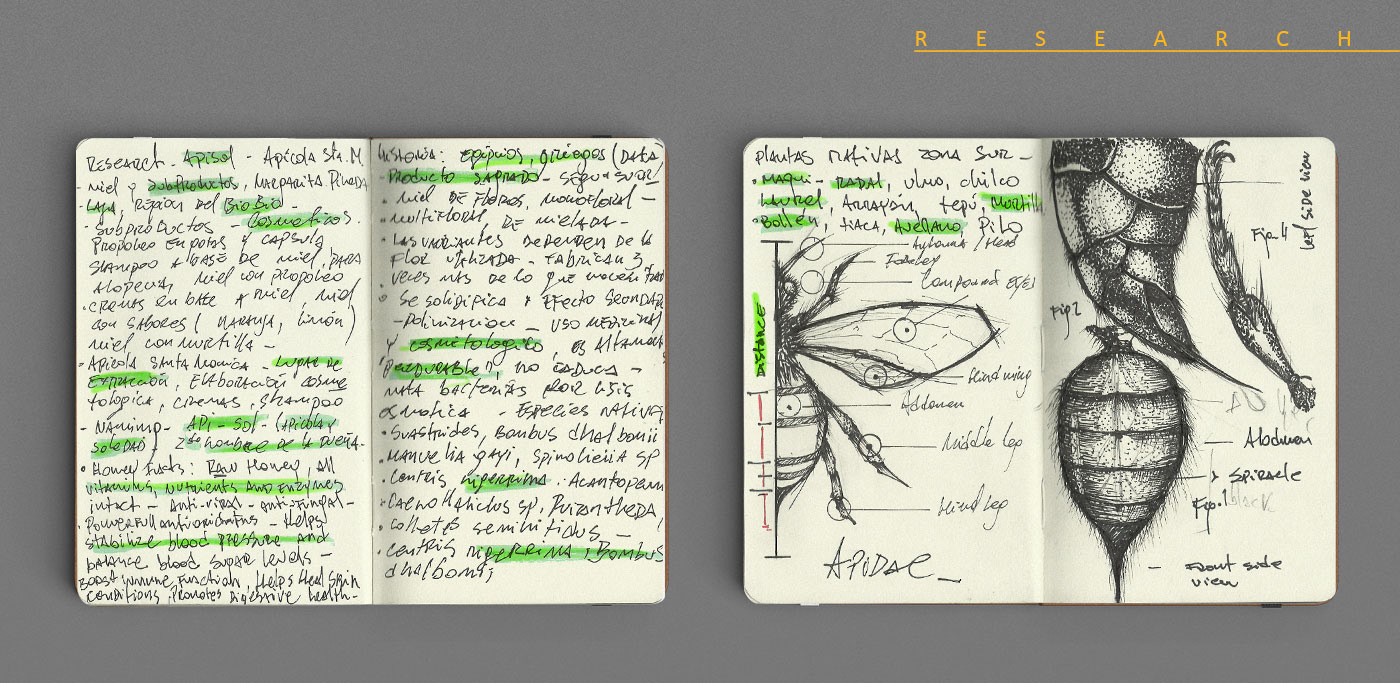 RESEARCH
RESEARCH - Apisol - Apícola Sta. M.
- Miel y subproductos, Margarita Pineda
- Laja, Región del Bio Bio -
- Subproductos - Cosmeticos.
Propoleo en potos y capsula
Shampoo a base de miel, para
alopecia, miel con propoleo
. cremas en base a miel, miel
con sabores ( naranja, limón)
miel con murtilla -
- Apícola Santa Monica - Lugar de
Extracción, Elaboración cosme
tologica, cremas, shampoo
- Naming - API - SOL - (Apícola y
Soledad) 2do nombre de la dueña.
. Honey Facts: Raw Honey, all
vitamins, nutrients and enzymes
intact - Anti-viral - Anti-fungal -
. Powerfull antioxidants - Helps
stabilize blood pressure and
balance blood sugar levels -
Boost immune function, Helps Heal Skin
conditions, promotes digestive health -
Historia: egipcios, griegos (Data
Producto sagrado -
. Miel de flores, monofloral -
- multifloral, de mielada -
. Las variantes dependen de la
flor utilizada - Fabrican 3
veces más de lo que necesitan
Se solidifica & Efecto Secundar
- Polinizacion - uso medicinal
y cosmetologico, es altament
Perdurable, no caduca -
mata bacterias por lisis
osmotica - Especies nativas
. Bombus dhalbomii
. Manuelia gayi, Spinoliella sp
. Centris nigerrima .
. Caenohalictus sp,
. Colletes seminitidus, -
. Centris nigerrima, Bombus
dhalbomii
Plantas nativas zona sur -
. Maqui - Radal, ulmo, chilco
Laurel, Arrayán, tepú, Murtill
. Bollen, tiaca, Avellano, Pilo
Antenna / Head
Foreleg
Compound eyes
Distance
Hind wing
Abdomen
Middle leg
Hind leg
Apidae_
Fig. 4
Left side view
Fig 2
Abdomen
Spiracle
Fig. 1
black
Front side
view